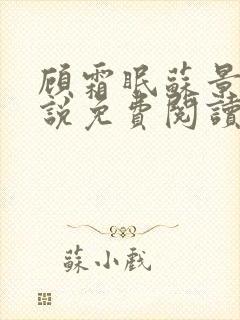 顾霜眠蘇景
説免費閱讀
蘇小戲